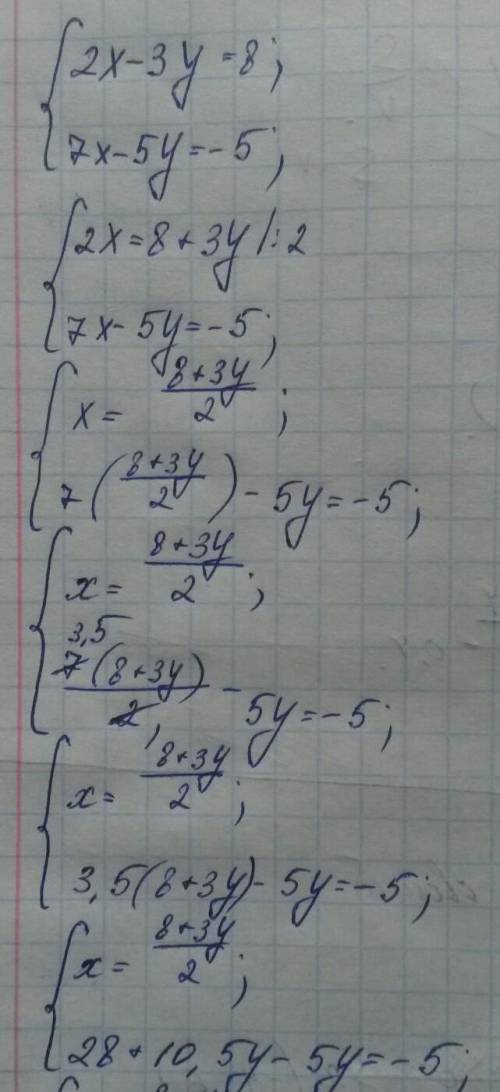 2x-3y=8;
7x-5y=-5;
2x=8+3y |:2
7x-5y=-5;
x= (8+3y)/2;
7((8+3y)/2)-5y=-5;
x= (8+3y)/2;
3,5
7(8+3y)/2, -5y=-5;
x= (8+3y)/2;
3,5(8+3y)-5y=-5;
x= (8+3y)/2;
28+10,5y-5y=-5;